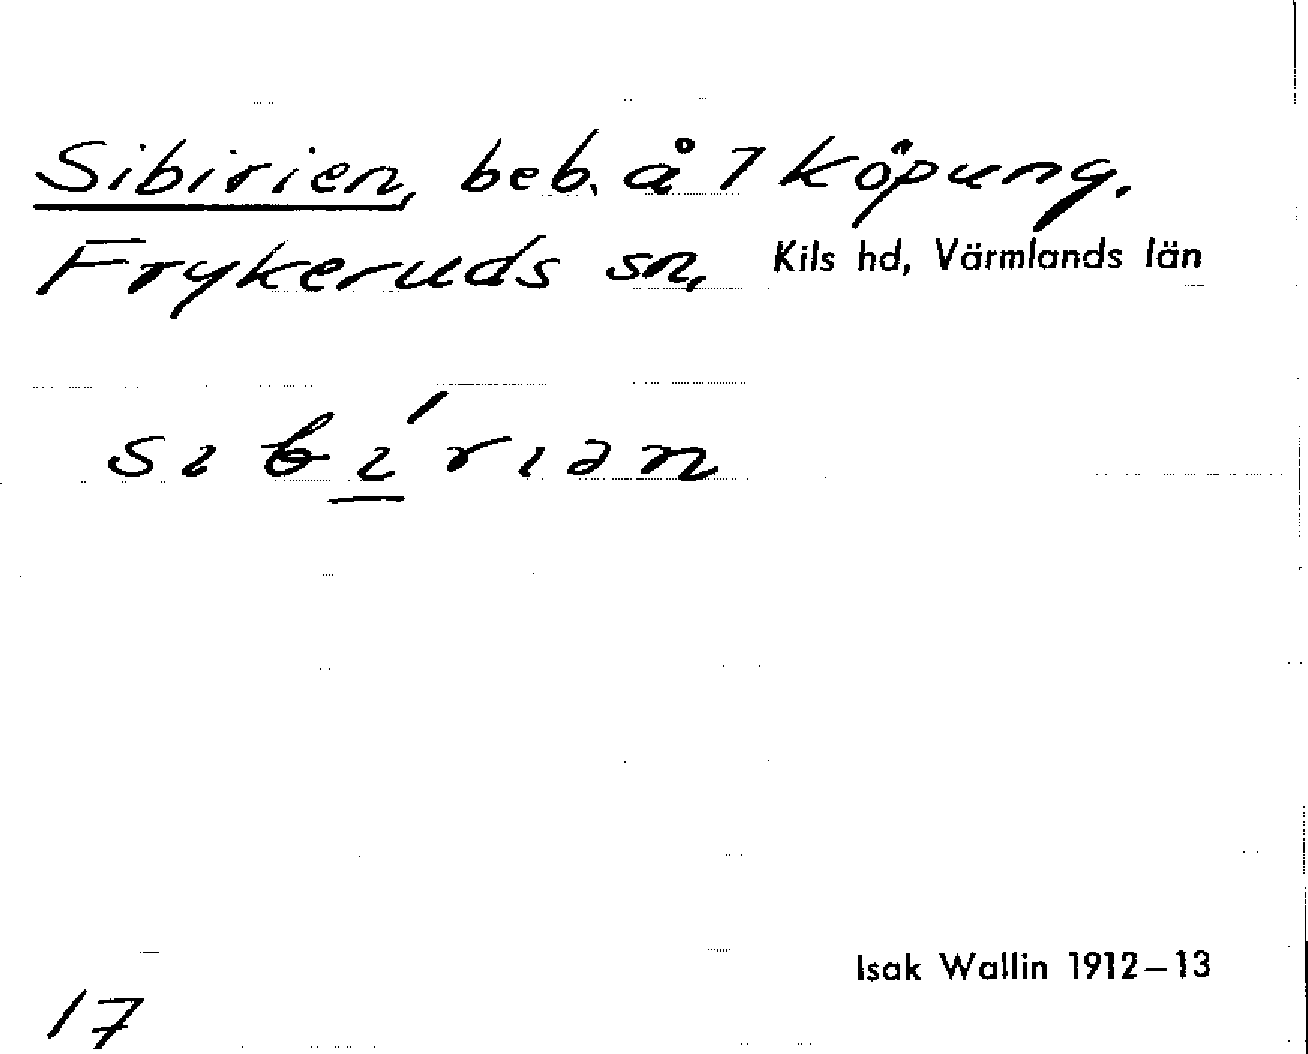 Sibirien, beb. å 7 Köpung.
Frykeruds sn, Kils hd, Värmlands län
sibi̱ ́riən
Isak Wallin 1912–13
17